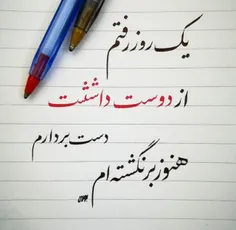 یک روز رفتم
از دوست داشتنت
دست بردارم
هنوز برنگشته‌ام